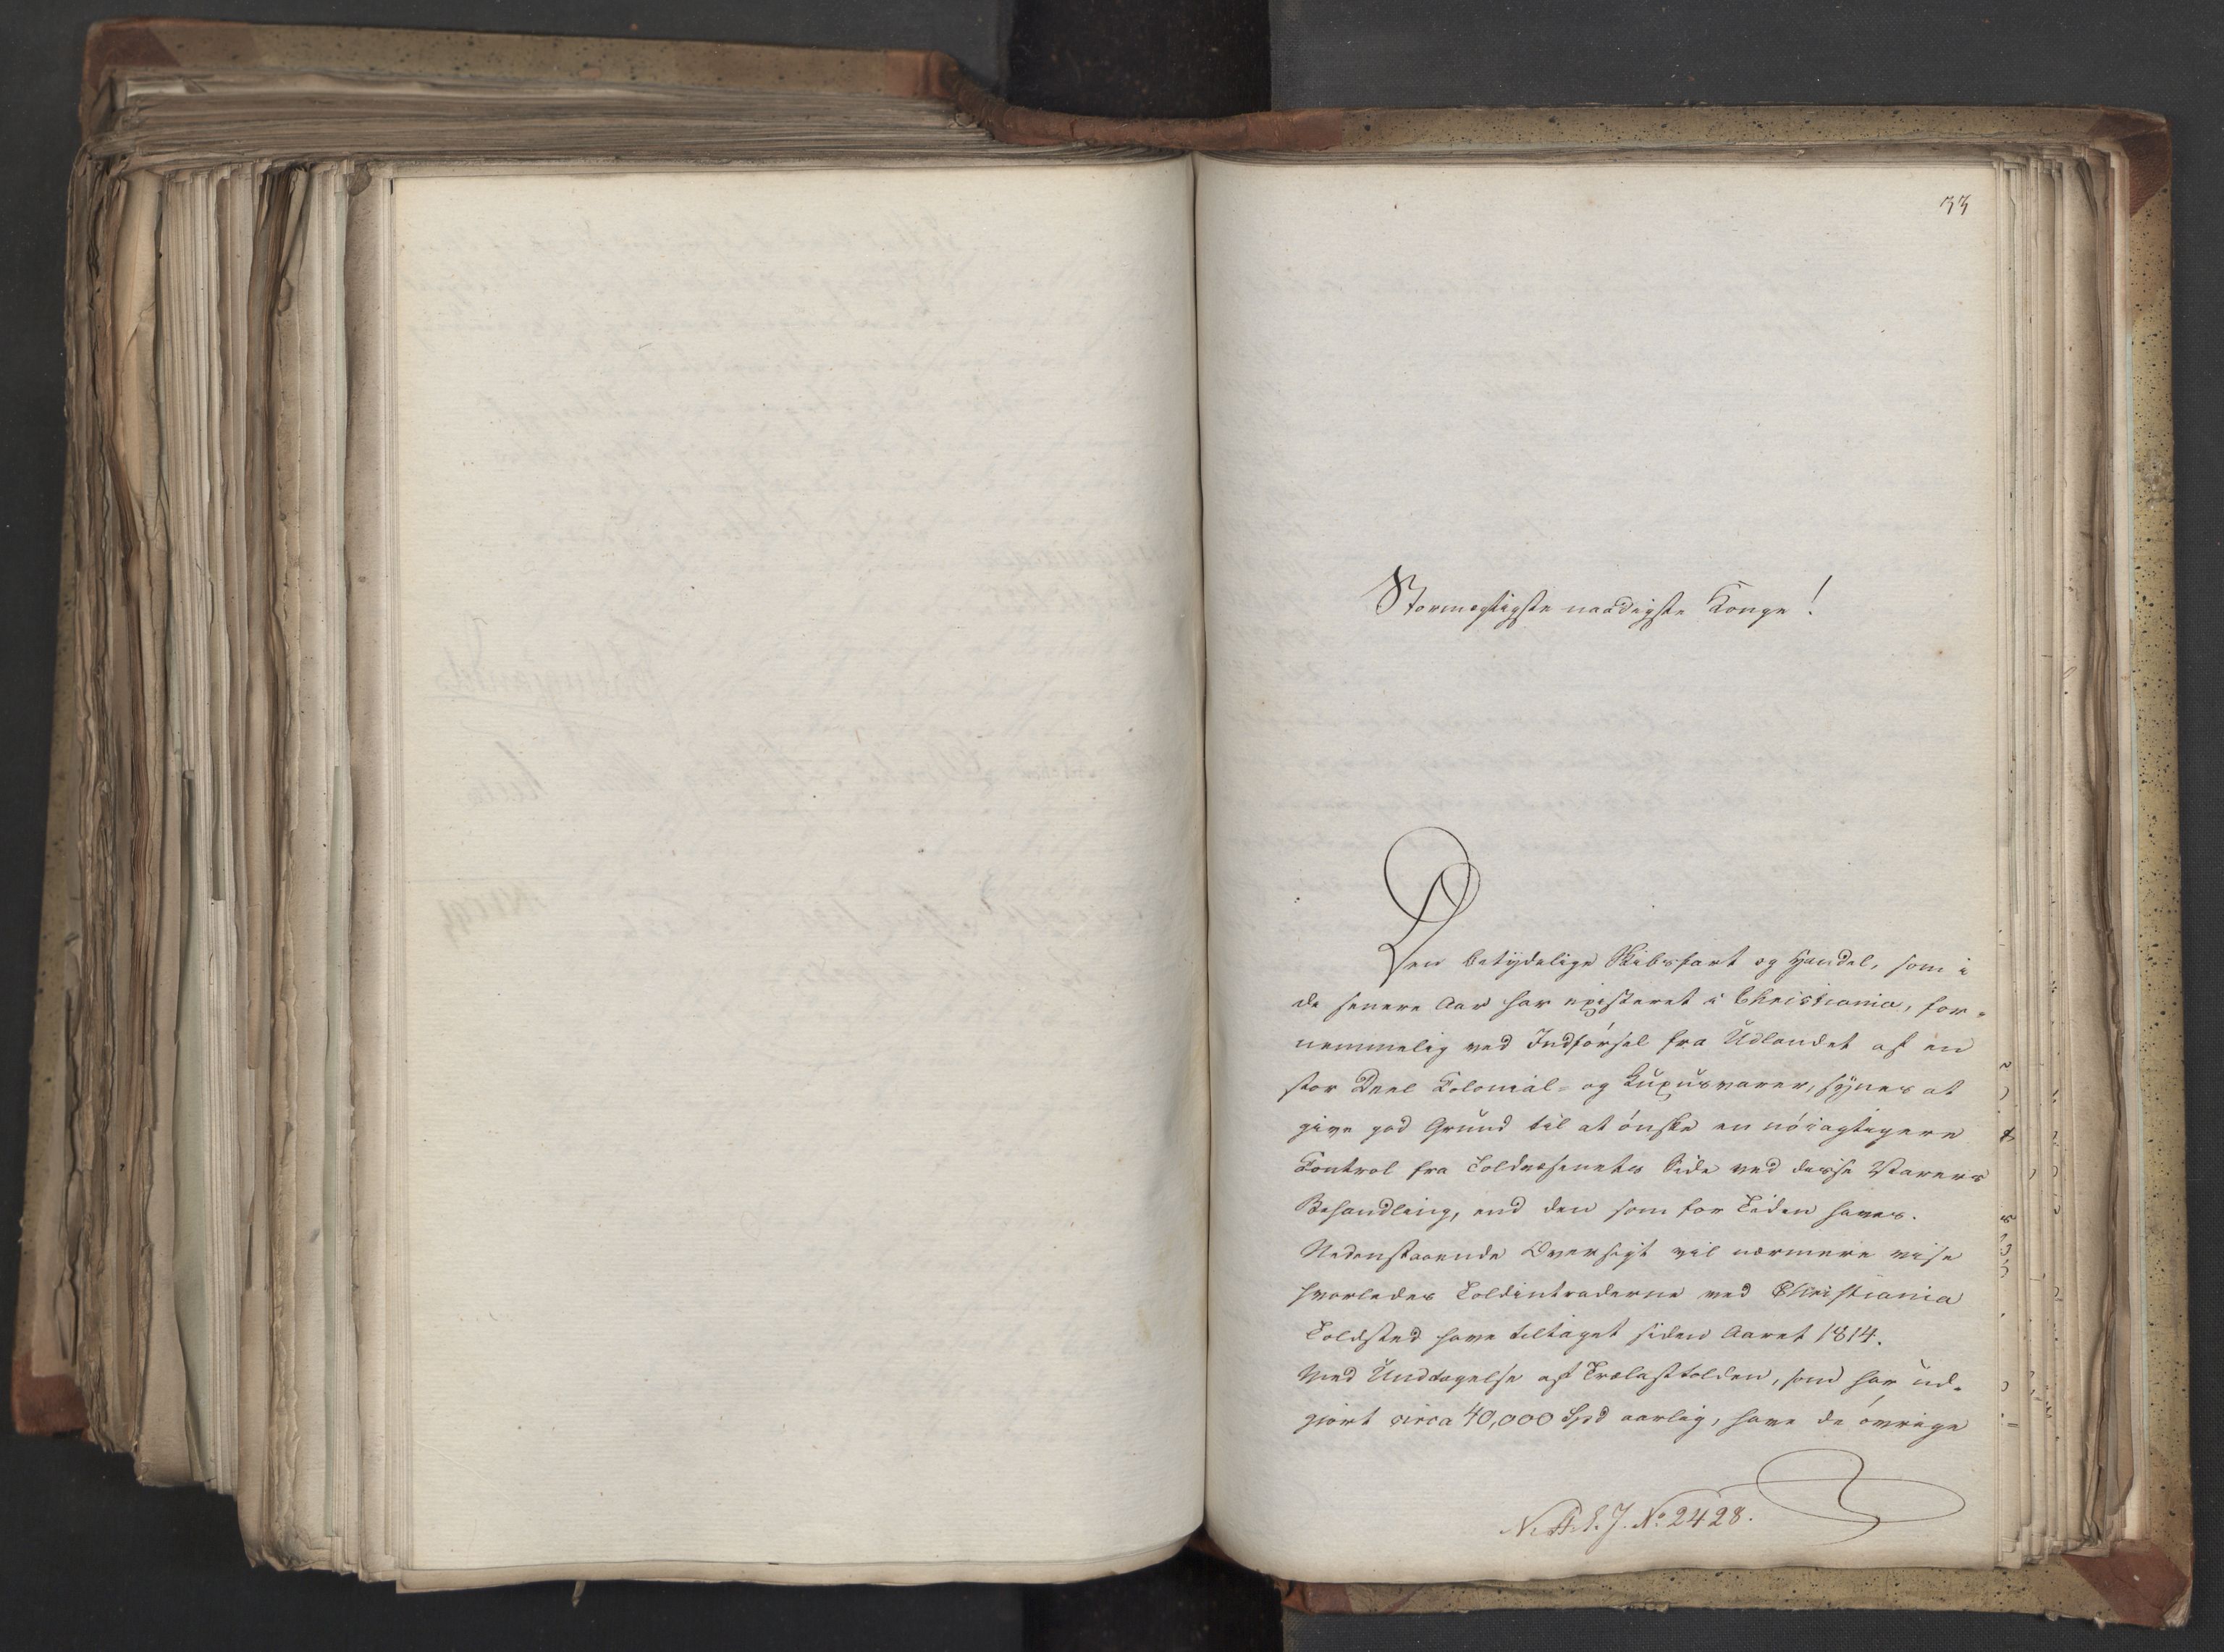 33
Stormægtigste naadigste Konge!
Den betydelige Skibsfart og Handel, som i
de senere Aar har existeret i Christiania, for-
nemmelig ved Indførsel fra Udlandet af en
stor Deel Colonial- og Luxusvarer, synes at
give god Grund til at ønske en nøiagtigere
Control fra Toldvæsenets Side ved disse Varers
Behandling, end den som for Tiden haves.
Nedenstaaende Oversigt vil nærmere vise
hvorledes Toldintraderne ved Christiania
Toldsted have tiltaget siden Aaret 1814.
Med Undtagelse af Trælasttolden, som har ud-
giort circa 40,000 Spd aarlig, have de øvrige
J. No. 2428.